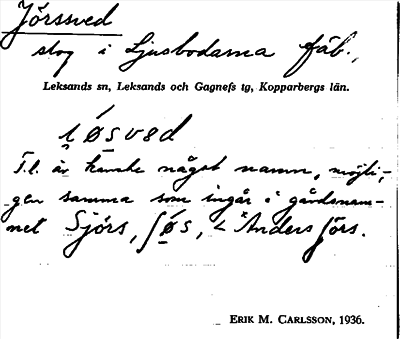 Jörssved
skog i Ljusbodarna fäb.,
Leksands sn, Leksands och Gagnefs tg, Kopparbergs län.
F.l. är kanske något namn, möjli-
gen samma som ingår i gårdsnam-
net Sjörs, ʃø̀s, < *Anders Jörs.
ERIK M. CARLSSON, 1936.